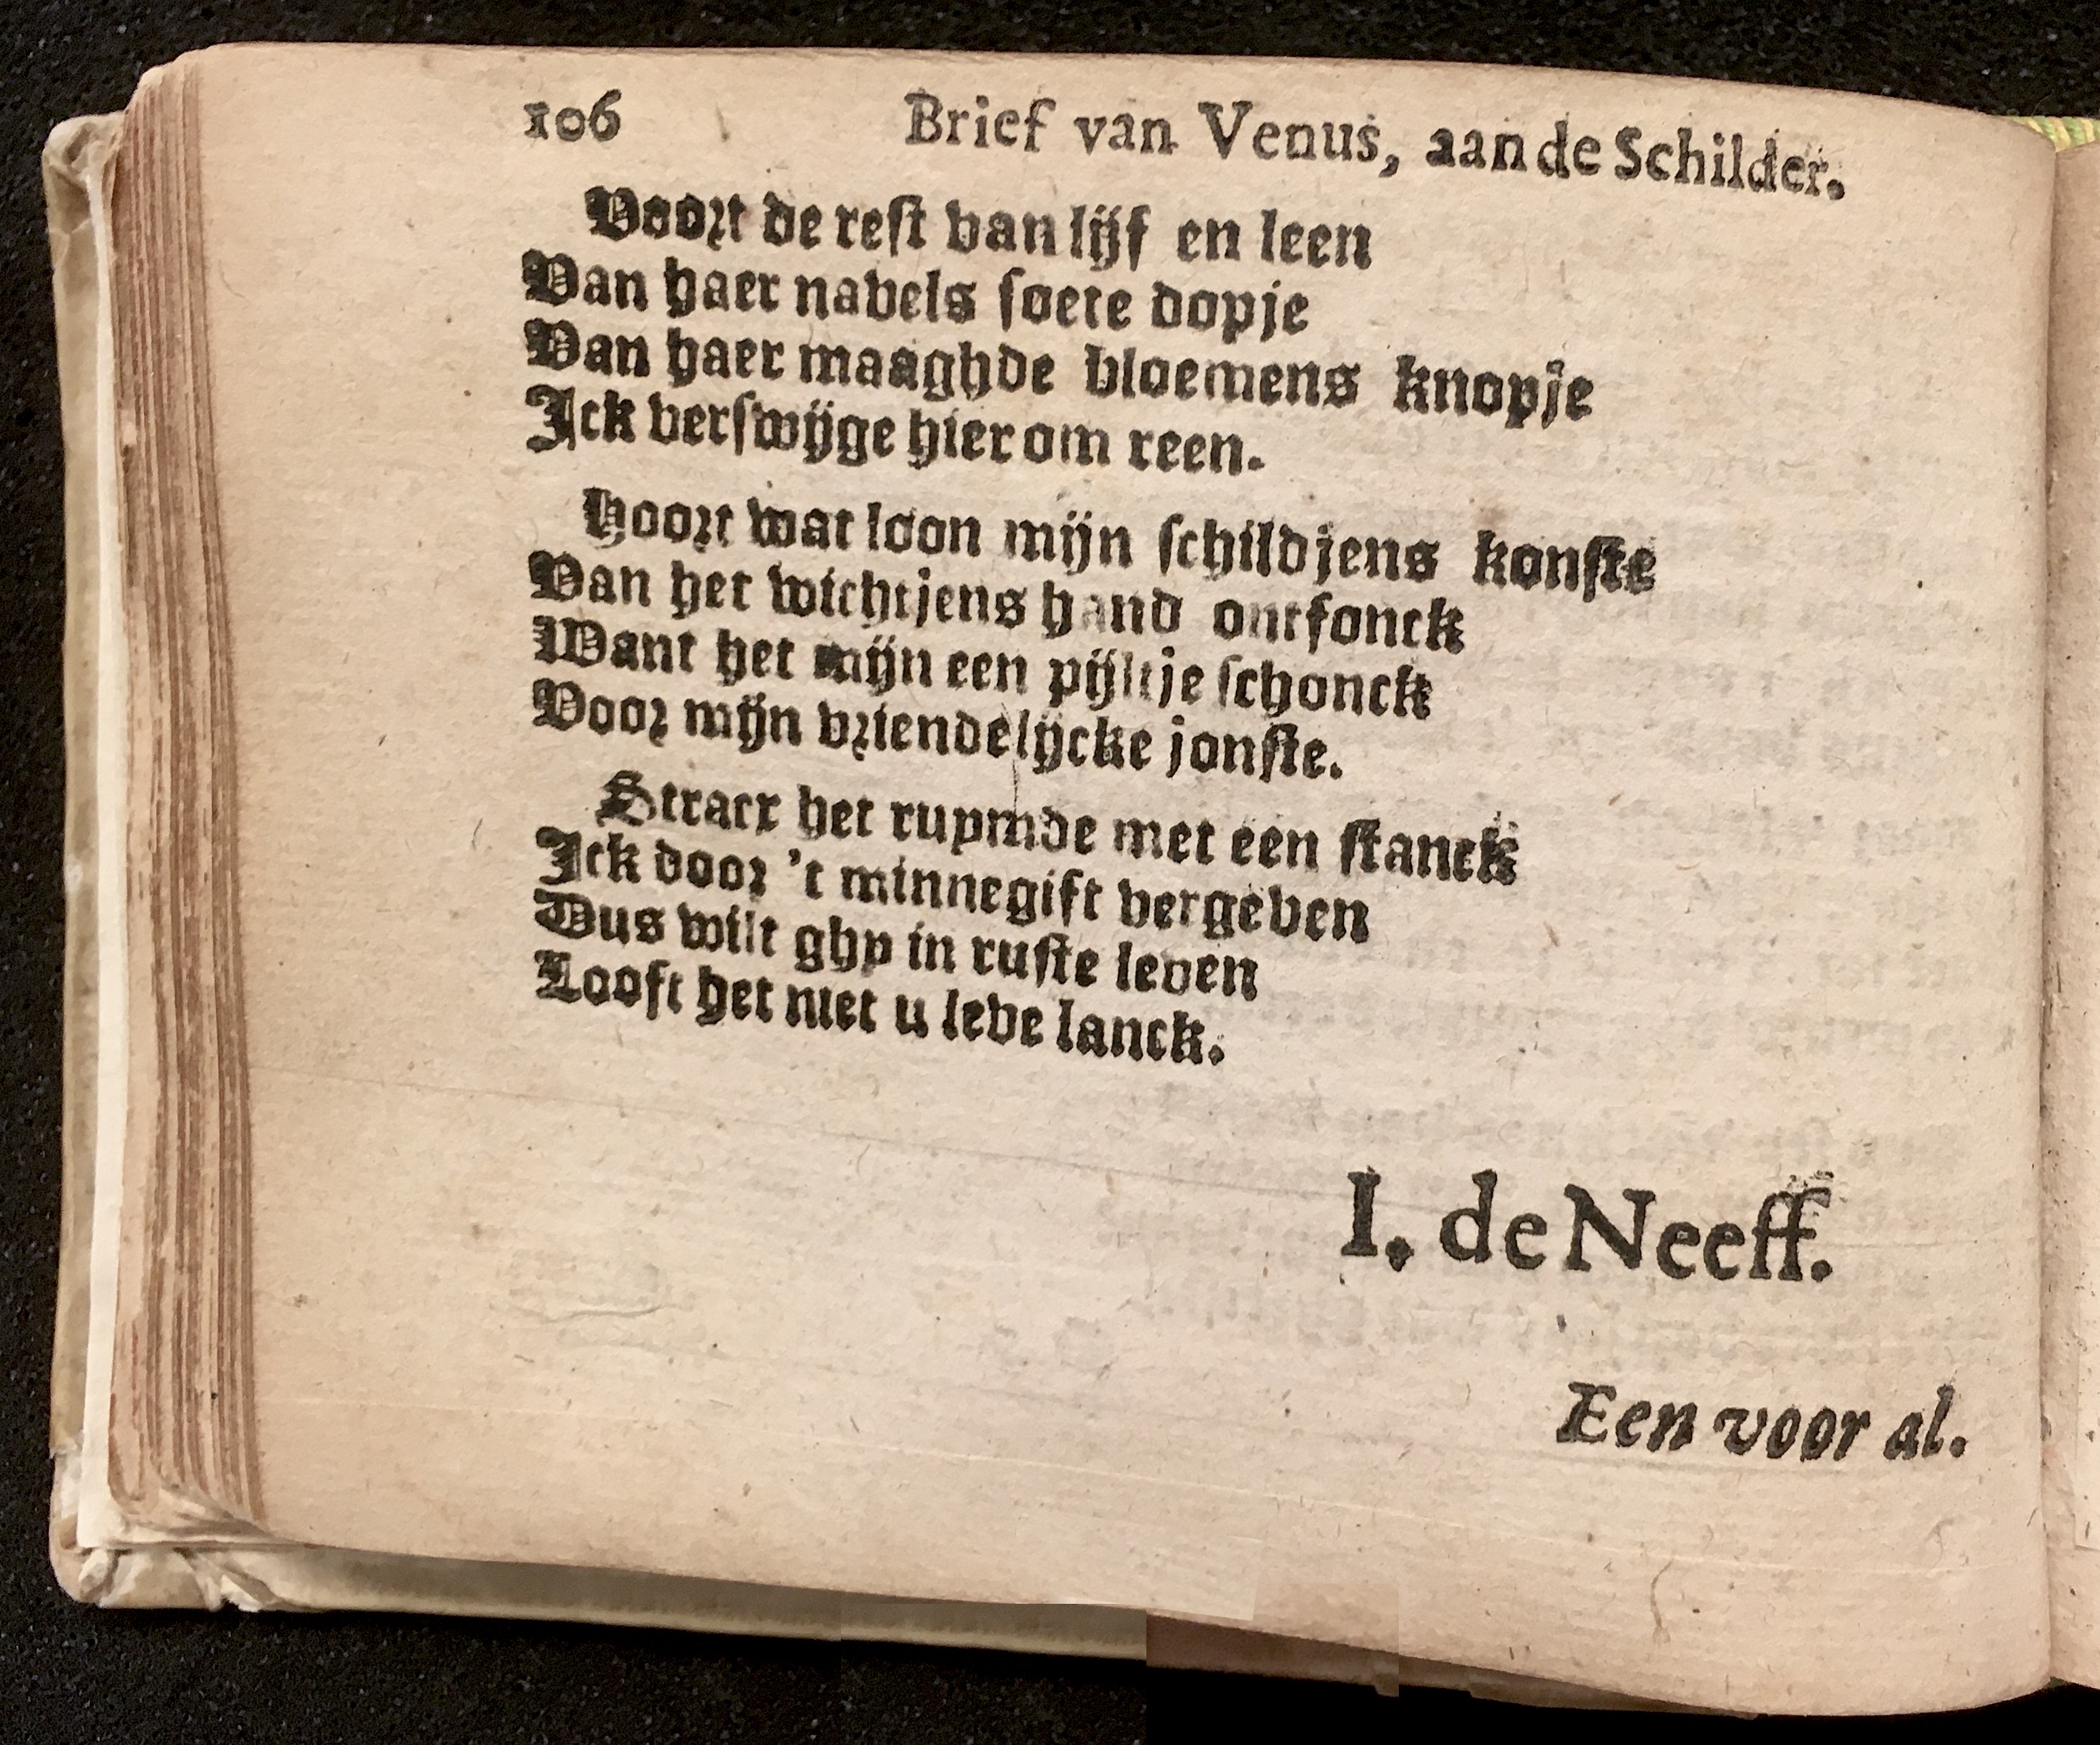 106 Brief van Venus, aan de Schilder.
Voort de rest van lijf en leen
Van haer navels soete dopje
Van haer maaghde bloemens knopje
Ick verswijge hier om reen.
Hoort wat loon mijn schildjens konste
Van het wichtjens hand ontfonck
Want het mijn een pijltje schonck
Voor mijn vriendelijcke jonste.
Stracx het ruymde met een stanck
Ick door 't minnegift vergeven
Dus wilt ghy in ruste leven
Looft het niet u leve lanck.
I. de Neeff.
Een voor al.